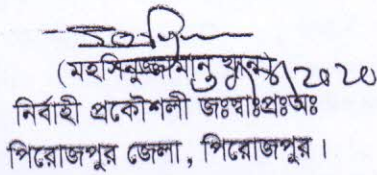 (মহসিনুজ্জামান খান)
নির্বাহী প্রকৌশলী জঃস্বাঃপ্রঃঅঃ
পিরোজপুর জেলা, পিরোজপুর।